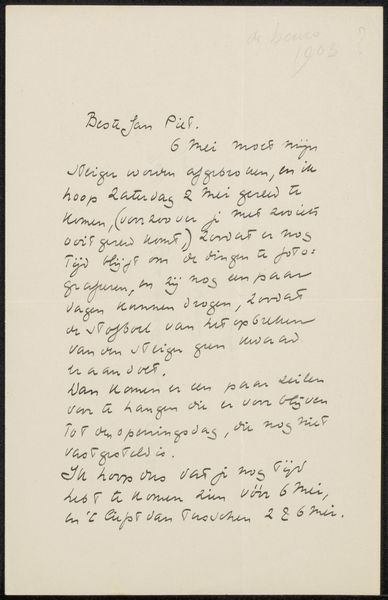 de beurs
1903 ?
Beste Jan Piet.
6 Mei moet mijn
steiger worden afgebroken, en ik
hoop Zaterdag 2 Mei gereed te
komen, (voor zoover je met zooiets
ooit gereed komt,) zoodat er nog
tijd blijft om de dingen te foto-
graferen, en zij nog een paar
dagen kunnen drogen, zoodat
de stofboel van het opbreken
van den steiger geen kwaad
er aan doet.
Dan komen er een paar zeilen
voor te hangen die er voor blijven
tot den openingsdag, die nog niet
vastgesteld is.
Ik hoop dus dat je nog tijd
hebt te komen zien vóór 6 Mei,
en 't liefst van tusschen 2 & 6 Mei.